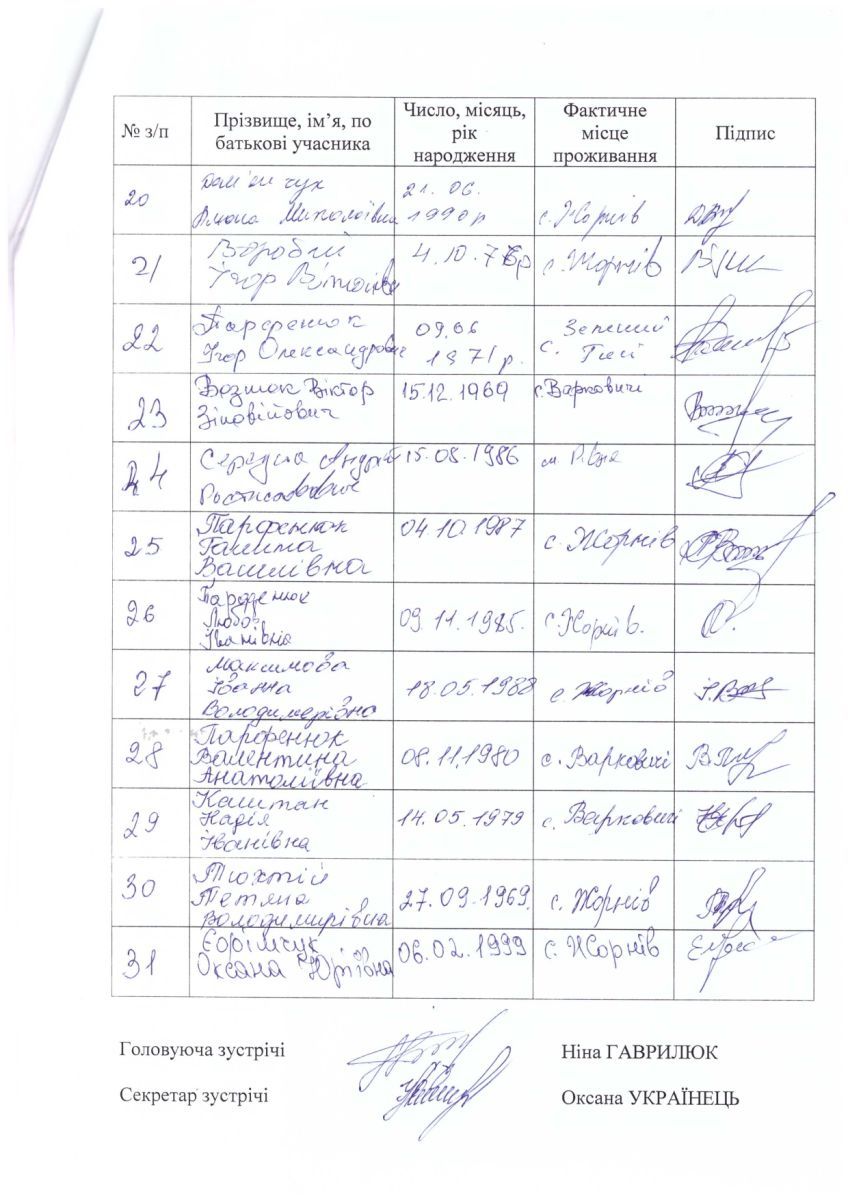 № з/п
Прізвище, ім’я, по
батькові учасника
Число, місяць,
рік
народження
Фактичне
місце
проживання
Підпис
20
Дем'янчук
Миколаївна
21. 06.
1990р
с. Жорнів
21
Воробей
Ігор
4. 10. 7
с. Жорнів
22
Парфенюк
Ігор Олександрович
09.06
1971р.
с.
23
Вознюк Віктор
Зіновійович
15.12.1969
с. Варковичі
24
Середа Андрій
Ростиславович
15.08.1986
м. Рівне
25
Парфенюк
Галина
Василівна
04.10.1987
с. Жорнів
26
Парфенюк
Любов
Іванівна
09.11.1985.
с. Жорнів.
27
Максимова
Іванна
Володимирівна
18.05.1988
с. Жорнів
28
Парфенюк
Валентина
Анатоліївна
08.11.1980
с. Варковичі
29
Каштан
Надія
Іванівна
14.05.1979
с. Варковичі
30
Тюхтій
Тетяна
Володимирівна
27.09.1969.
с. Жорнів
31
Єфімчук
Оксана Юріївна
06.02.1999
с. Жорнів
Головуюча зустрічі
Ніна ГАВРИЛЮК
Секретар зустрічі
Оксана УКРАЇНЕЦЬ